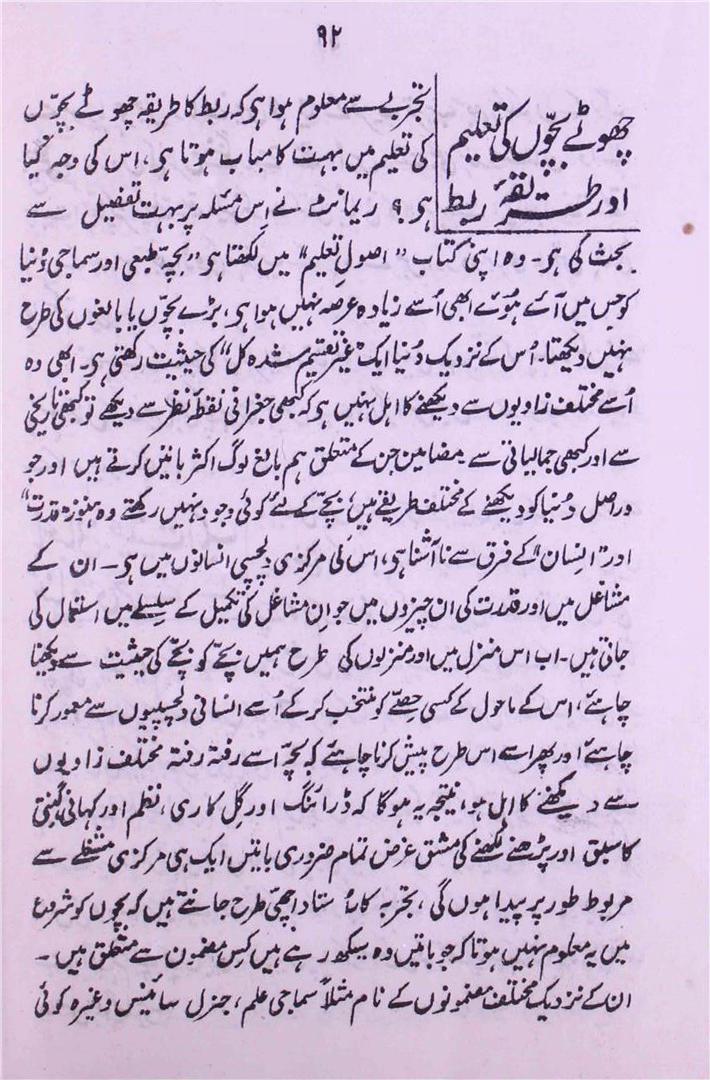 ۹۲
چھوٹے بچّوں کی تعلیم
اور طریقۂ ربط
تجربے سے معلوم ہوا ہو کہ ربط کا طریقہ چھوٹے بچّوں
کی تعلیم میں بہت کامیاب ہوتا ہو، اس کی وجہ کیا
ہو؟ ریمانٹ نے اِس مسئلہ پر بہت تفصیل سے
بحث کی ہو۔ وہ اپنی کتاب "اصولِ تعلیم" میں لکھتا ہو "بچہ طبعی اور سماجی دُنیا
کو جس میں آئے ہوئے ابھی اُسے زیادہ عرصہ نہیں ہوا ہو، بڑے بچّوں یا بالغوں کی طرح
نہیں دیکھتا۔ اُس کے نزدیک دُنیا ایک "غیر تقسیم شدہ کل" کی حیثیت رکھتی ہو۔ ابھی وہ
اُسے مختلف زاویوں سے دیکھنے کا اہل نہیں ہو کہ کبھی جغرافی نقطۂ نظر سے دیکھے تو کبھی تاریخی
سے اور کبھی جمالیاتی سے۔ مضامین جن کے متعلق ہم بالغ لوگ اکثر باتیں کرتے ہیں اور جو
دراصل دُنیا کو دیکھنے کے مختلف طریقے ہیں، بچّے کے لئے کوئی وجود نہیں رکھتے وہ ہنوز "قدرت"
اور "انسان" کے فرق سے ناآشنا ہو، اس کی مرکزی دلچسپی انسانوں میں ہو۔ ان کے
مشاغل میں اور قدرت کی ان چیزوں میں جو اِن مشاغل کی تکمیل کے سلسلے میں استعمال کی
جاتی ہیں۔ اب اس منزل میں اور منزلوں کی طرح ہمیں بچّے کو بچّے کی حیثیت سے دیکھنا
چاہئے، اس کے ماحول کے کسی حصّے کو منتخب کر کے اُسے انسانی دلچسپیوں سے معمور کرنا
چاہئے اور پھر اسے اس طرح پیش کرنا چاہئے کہ بچّہ اسے رفتہ رفتہ مختلف زاویوں
سے دیکھنے کا اہل ہو، نتیجہ یہ ہوگا کہ ڈرائنگ اور گِل کاری، نظم اور کہانی، گنتی
کا سبق اور پڑھنے لکھنے کی مشق غرض تمام ضروری باتیں ایک ہی مرکزی مشغلے سے
مربوط طور پر پیدا ہوں گی، تجربہ کار اُستاد اچھی طرح جانتے ہیں کہ بچّوں کو شروع
میں یہ معلوم نہیں ہوتا کہ جو باتیں وہ سیکھ رہے ہیں کِس مضمون سے متعلق ہیں۔
ان کے نزدیک مختلف مضمونوں کے نام مثلاً سماجی علم، جنرل سائنس وغیرہ کوئی